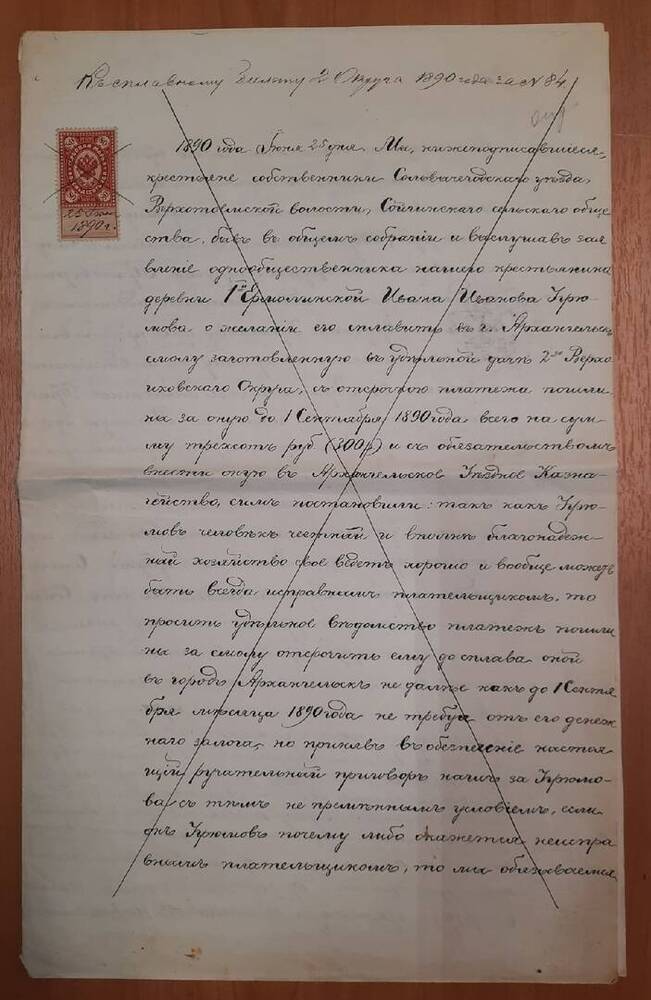 Къ сплавному билету 2 Округа 1890 года за № 84.
1890 года Іюня 25 дня. Мы, нижеподписавшіеся,
крестьяне собственники Сольвычегодскаго уѣзда,
Верхотоемской волости, Сойгинскаго сельскаго обще
ства, бывъ въ общемъ собраніи и выслушавъ зая
вленіе однообщественника нашего крестьянина
деревни 1й Ермолинской Ивана Иванова Угрю
мова о желаніи его сплавить въ г. Архангельскъ
смолу заготовленную въ удѣльной дачѣ 2го Верхо
Округа, съ отсрочкою платежа пошли
ны за оную до 1 Сентября 1890 года всего на сум
му трехсотъ руб (300 р) и съ обязательствомъ
внести оную въ Архангельское Уѣздное Казна
чейство, симъ постановили: такъ какъ Угрю
мовъ человѣкъ честный и вполнѣ благонадеж
ный хозяйство свое ведетъ хорошо и вообще можетъ
быть всегда исправнымъ плательщикомъ, то
просить удѣльное вѣдомство платежъ пошли
ны за смолу отсрочить ему до сплава оной
въ городъ Архангельскъ не далѣе какъ до 1 Сентя
бря мѣсяца 1890 года не требуя отъ его денеж
наго залога, но принявъ въ обезпеченіе настоя
щій ручательный приговоръ нашъ за Угрюмо
ва съ тѣмъ не премѣннымъ условіемъ, если
бъ Угрюмовъ почему либо окажется неиспра
внымъ плательщикомъ, то мы обязываемся
25 Іюня
1890 г.